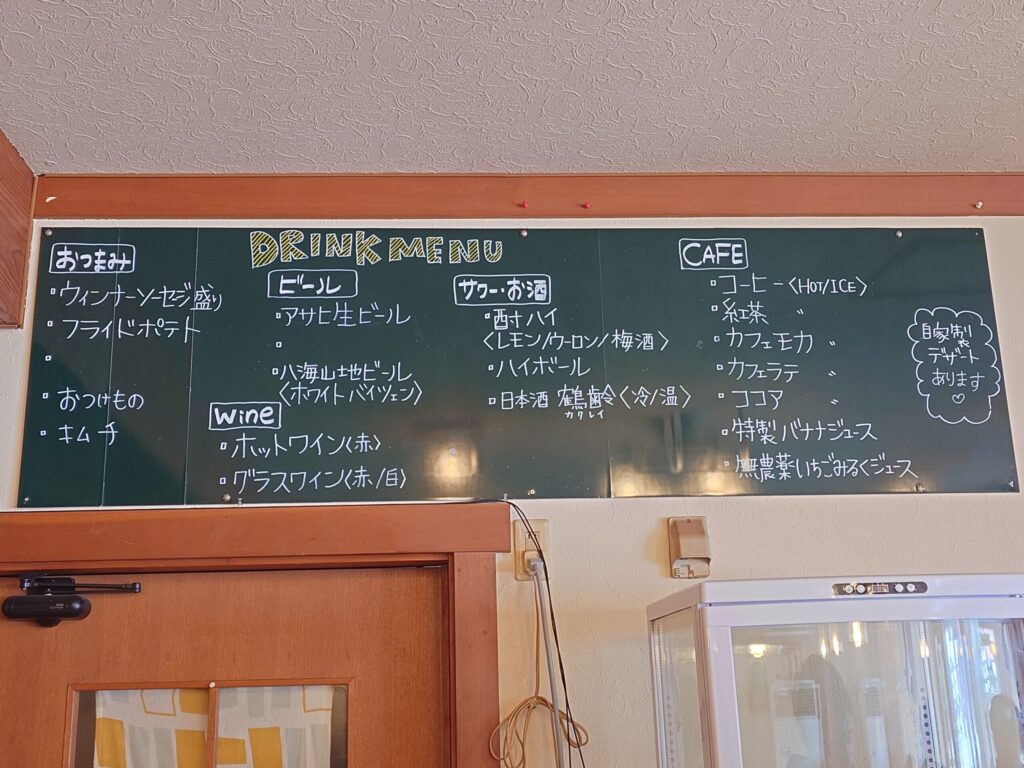 おつまみ
・ウィンナーソーセージ盛り
・フライドポテト
・
・おつけもの
・キムチ
DRINK MENU
ビール
・アサヒ生ビール
・
・八海山地ビール
〈ホワイトバイツェン〉
wine
・ホットワイン〈赤〉
・グラスワイン〈赤/白〉
サワー・お酒
・酎ハイ
〈レモン/ウーロン/梅酒〉
・ハイボール
・日本酒 鶴齢〈冷/温〉
カクレイ
CAFE
・コーヒー〈HOT/ICE〉
・紅茶 〃
・カフェモカ 〃
・カフェラテ 〃
・ココア 〃
・特製バナナジュース
・無農薬いちごみるくジュース
自家製
デザート
あります
♡